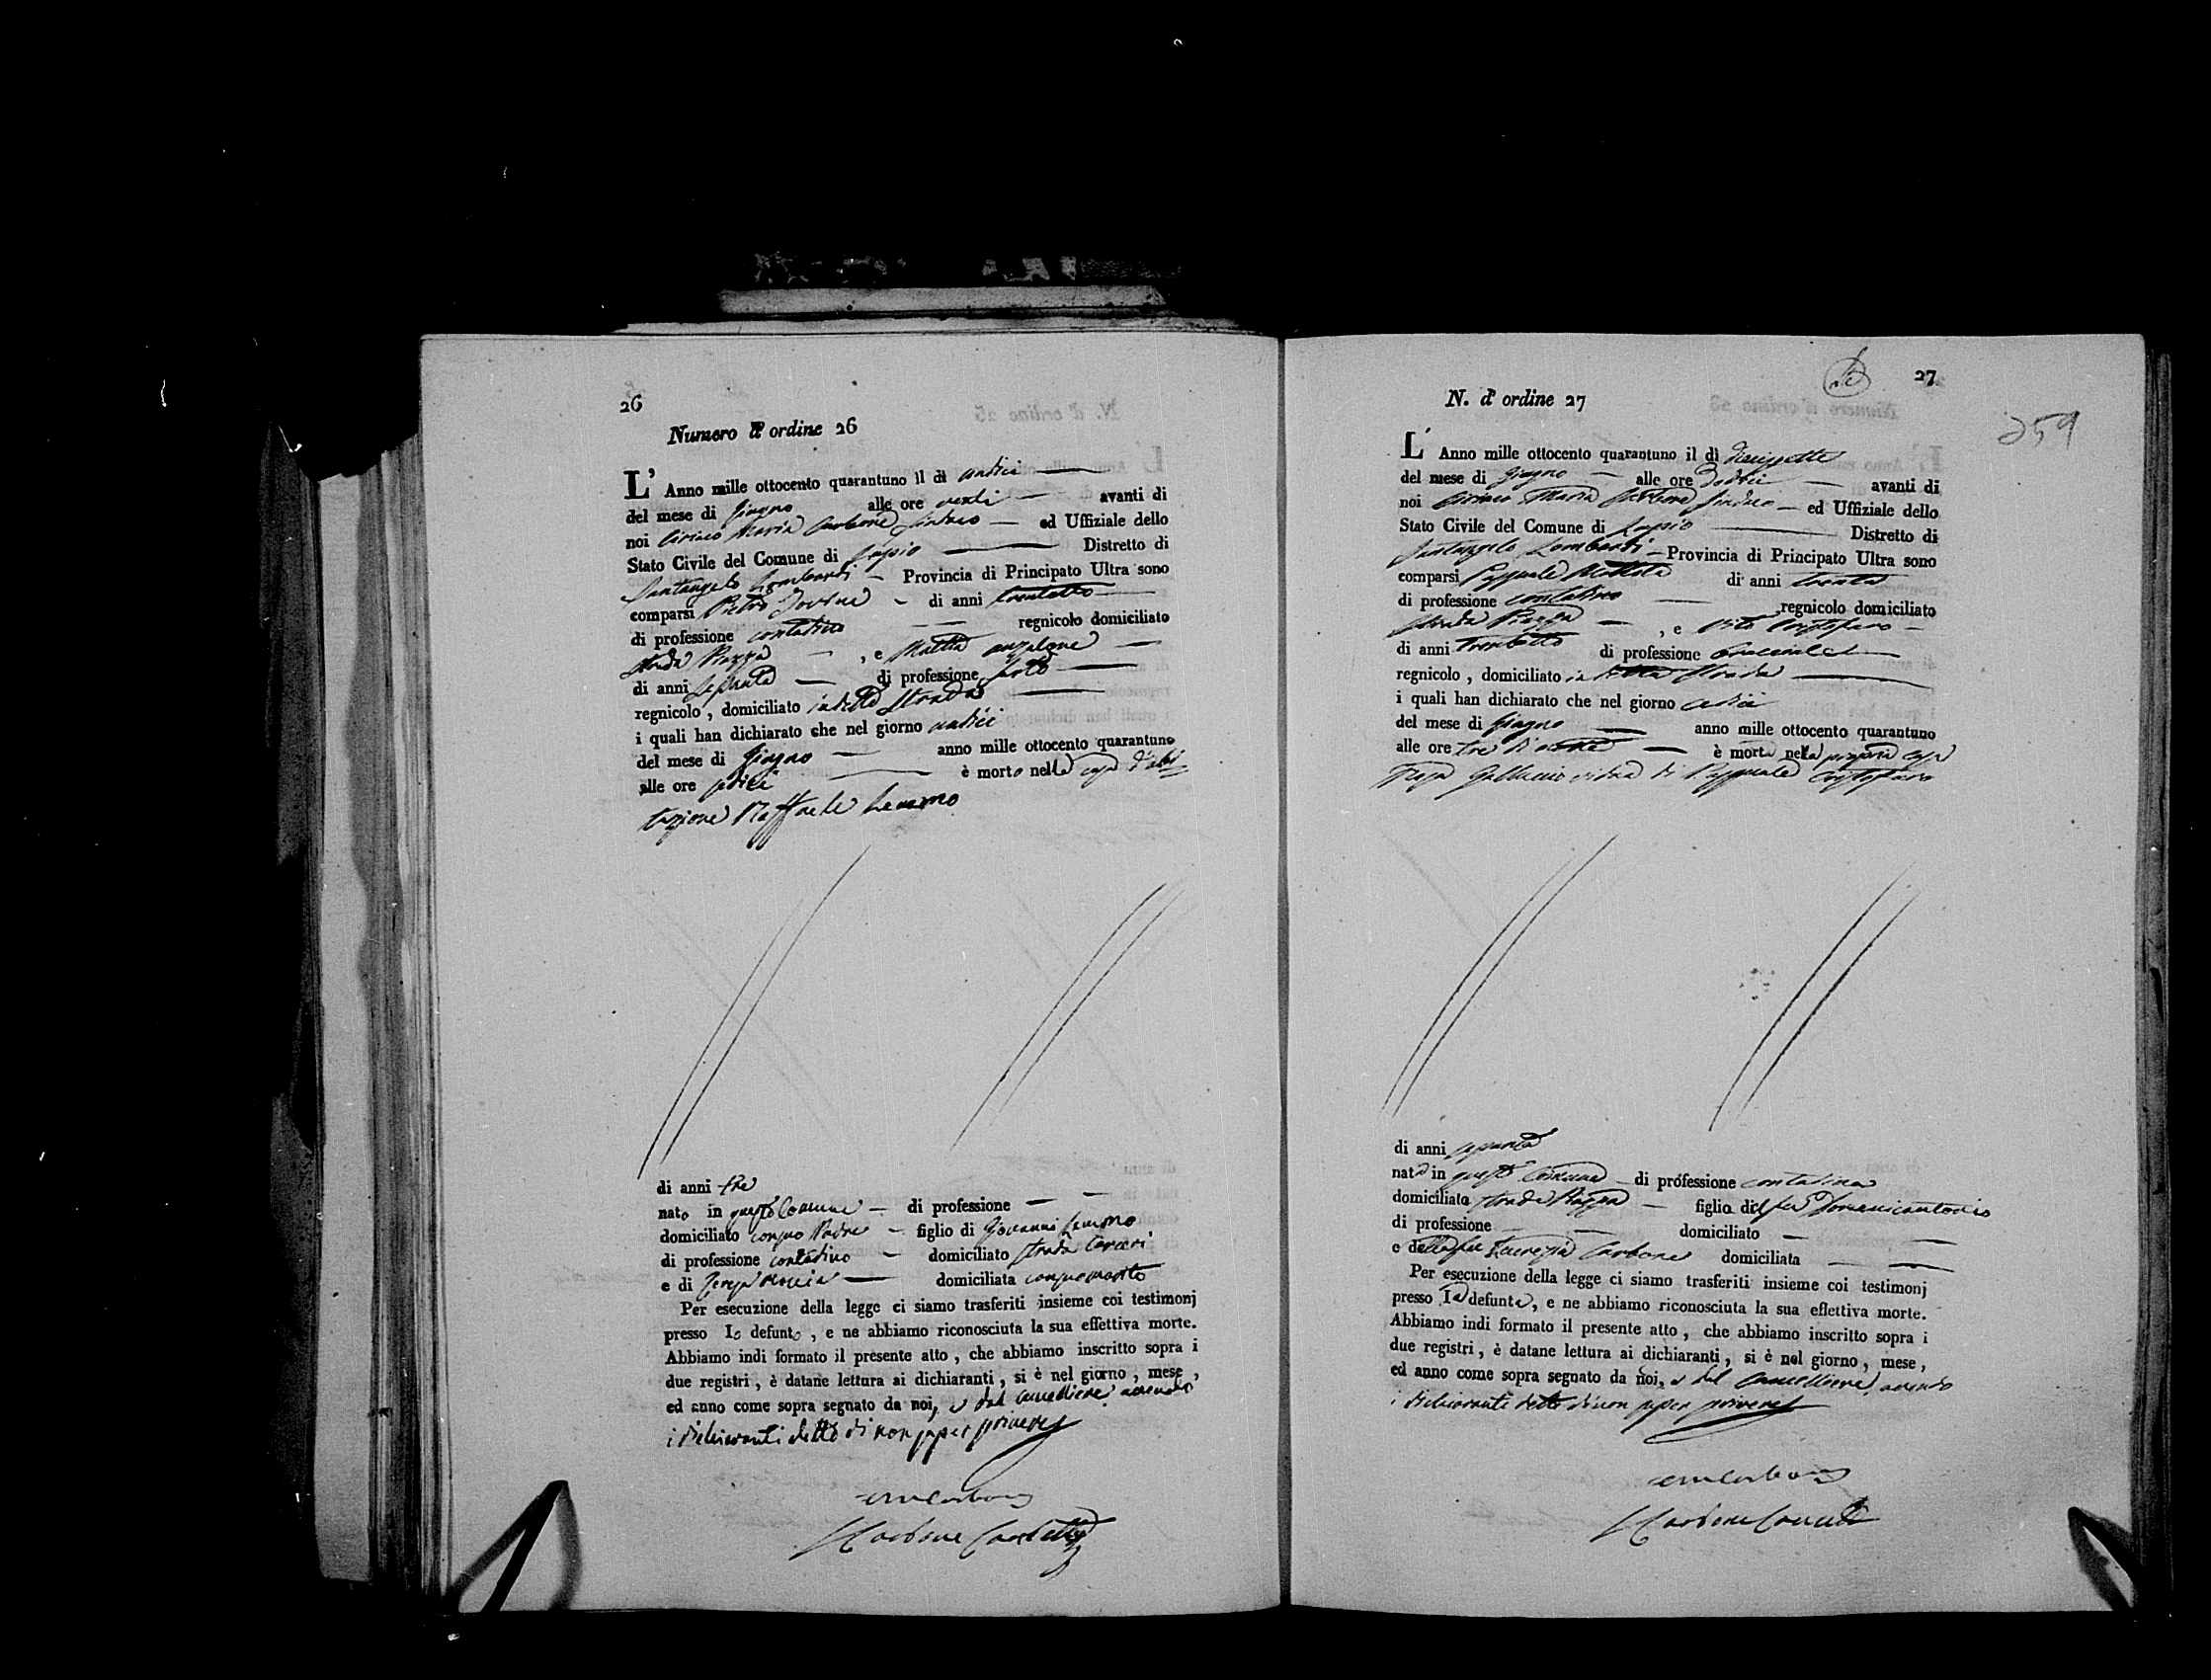 26
Numero d' ordine 26
L' Anno mille ottocento quarantuno il dì undici
del mese di Giugno alle ore venti avanti di
noi Ciriaco Maria Carbone Sindaco ed Uffiziale dello
Stato Civile del Comune di Lapio Distretto di
Santangelo Lombardi Provincia di Principato Ultra sono
comparsi Pietro Iovine di anni trentotto
di professione contadino regnicolo domiciliato
strada Piazza , e Mattia
di anni settanta di professione
regnicolo , domiciliato in detta strada
i quali han dichiarato che nel giorno undici
del mese di Giugno anno mille ottocento quarantuno
alle ore sedici è morto nella casa d'abi
tazione Raffaele Iemmo
di anni tre
nato in questo Comune di professione
domiciliato con suo Padre figlio di Giovanni Iemmo
di professione contadino domiciliato strada Carceri
e di Teresa domiciliata con suo marito
Per esecuzione della legge ci siamo trasferiti insieme coi testimonj
presso lo defunto , e ne abbiamo riconosciuta la sua effettiva morte.
Abbiamo indi formato il presente atto , che abbiamo inscritto sopra i
due registri , è datane lettura ai dichiaranti , si è nel giorno , mese ,
ed anno come sopra segnato da noi, e dal Cancelliere avendo
i dichiaranti detto di non saper scrivere
Carbone
27
259
N. d' ordine 27
L' Anno mille ottocento quarantuno il dì diecissette
del mese di Giugno alle ore dodici avanti di
noi Ciriaco Maria Carbone Sindaco ed Uffiziale dello
Stato Civile del Comune di Lapio Distretto di
Santangelo Lombardi Provincia di Principato Ultra sono
comparsi Pasquale di anni trenta
di professione contadino regnicolo domiciliato
strada Piazza , e Vito Cristofaro
di anni trentotto di professione bracciale
regnicolo , domiciliato in detta strada
i quali han dichiarato che nel giorno
del mese di Giugno anno mille ottocento quarantuno
alle ore tre di notte è morta nella propria casa
Galluccio vedova di Pasquale Cristofaro
di anni
nata in questo Comune di professione contadina
domiciliata strada Piazza figlia del fu Domenicantonio
di professione domiciliato
e della fu Lucrezia Carbone domiciliata
Per esecuzione della legge ci siamo trasferiti insieme coi testimonj
presso la defunta, e ne abbiamo riconosciuta la sua effettiva morte.
Abbiamo indi formato il presente atto , che abbiamo inscritto sopra i
due registri , è datane lettura ai dichiaranti, si è nel giorno , mese,
ed anno come sopra segnato da noi, e dal Cancelliere, avendo
i dichiaranti detto di non saper scrivere
Carbone